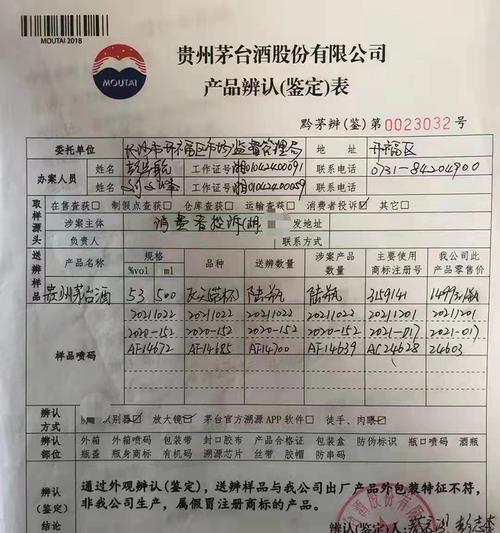 MOUTAI 2018
MOUTAI
贵州茅台酒股份有限公司
产品辨认(鉴定)表
黔茅辨(鉴)第0023032号
委托单位 长沙市开福区市场监督管理局 地址 开福区
办案人员 姓名 工作证号 湘01042400091 联系电话 0731-84204900
姓名 工作证号 湘01042400059
取样源头 在售查获□ 制假点查获□ 仓库查获□ 运输查获□ 消费者投诉☑ 其它□
涉案主体 消费者投诉(胡 发地址
负责人 联系方式
送辨样品 产品名称 规格 %vol ml 品种 送辨数量 涉案产品数量 主要使用商标注册号 我公司此产品零售价
贵州茅台酒 53 500 陆瓶 陆瓶 3159141 1499元/瓶
样品喷码 20211022 20211022 20211022 20211022 20211201 20211201
2020-152 2020-152 2020-152 2020-152 2021-017 2021-017
AF14672 AF14685 AF14700 AF14639 AC24628 24603
辨认方式 识别器☑ 放大镜☑ 茅台官方溯源APP软件□ 徒手、肉眼☑
辨认部位 外箱 外箱喷码 包装带 封口胶布 产品合格证 包装盒 防伪标识 瓶口喷码 酒瓶
瓶盖 瓶身商标 有机码 溯源芯片 丝带 胶帽 防串码
辨认(鉴定)结论 通过外观辨认(鉴定),送辨样品与我公司出厂产品外包装特征不符,
非我公司生产,属假冒注册商标的产品。
辨认(鉴定)人